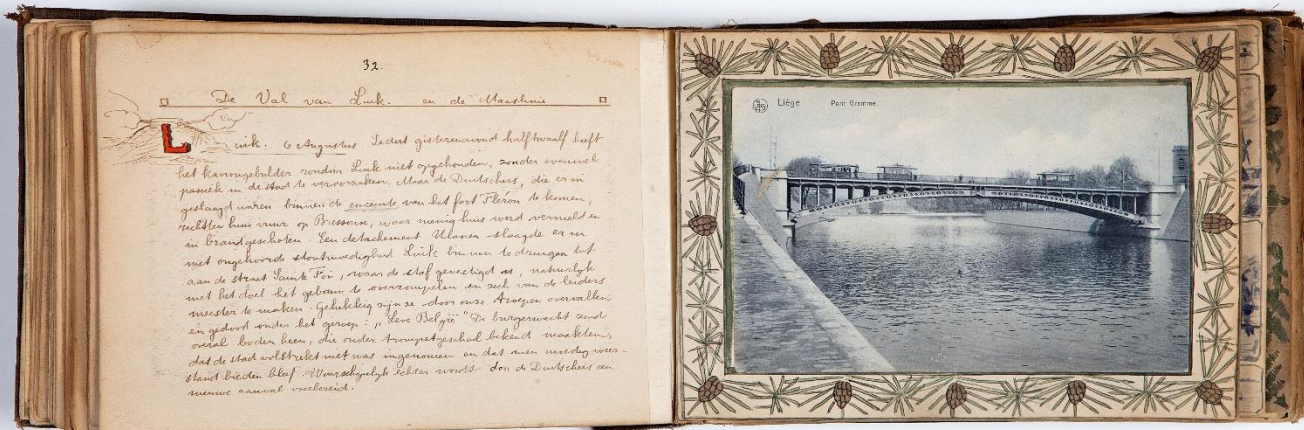 32.
De Val van Luik. en de Maaslinie
Luik. 6 Augustus Sedert gisterenavond halftwaalf heeft
het kanongebulder rondom Luik niet opgehouden, zonder evenwel
paniek in de stad te veroorzaken. Maar de Duitschers, die er in
geslaagd waren binnen de enceinte van het fort Fléron te komen,
richtten hun vuur op Bressoux, waar menig huis werd vernield en
in brand geschoten. Een detachement Ulanen slaagde er in
met ongehoorde stoutmoedigheid Luik binnen te dringen tot
aan de straat Sainte Foi, waar de staf gevestigd is, natuurlijk
met het doel het gebouw te overrompelen en zich van de leiders
meester te maken. Gelukkig zijn ze door onze troepen overvallen
en gedood onder het geroep: „Leve België" De burgerwacht zond
overal boden heen, die onder trompetgeschal bekend maakten,
dat de stad volstrekt niet was ingenomen en dat men moedig weer-
stand bieden bleef. Waarschijnlijk echter wordt door de Duitschers een
nieuwe aanval voorbereid.
Liège Pont Gramme.